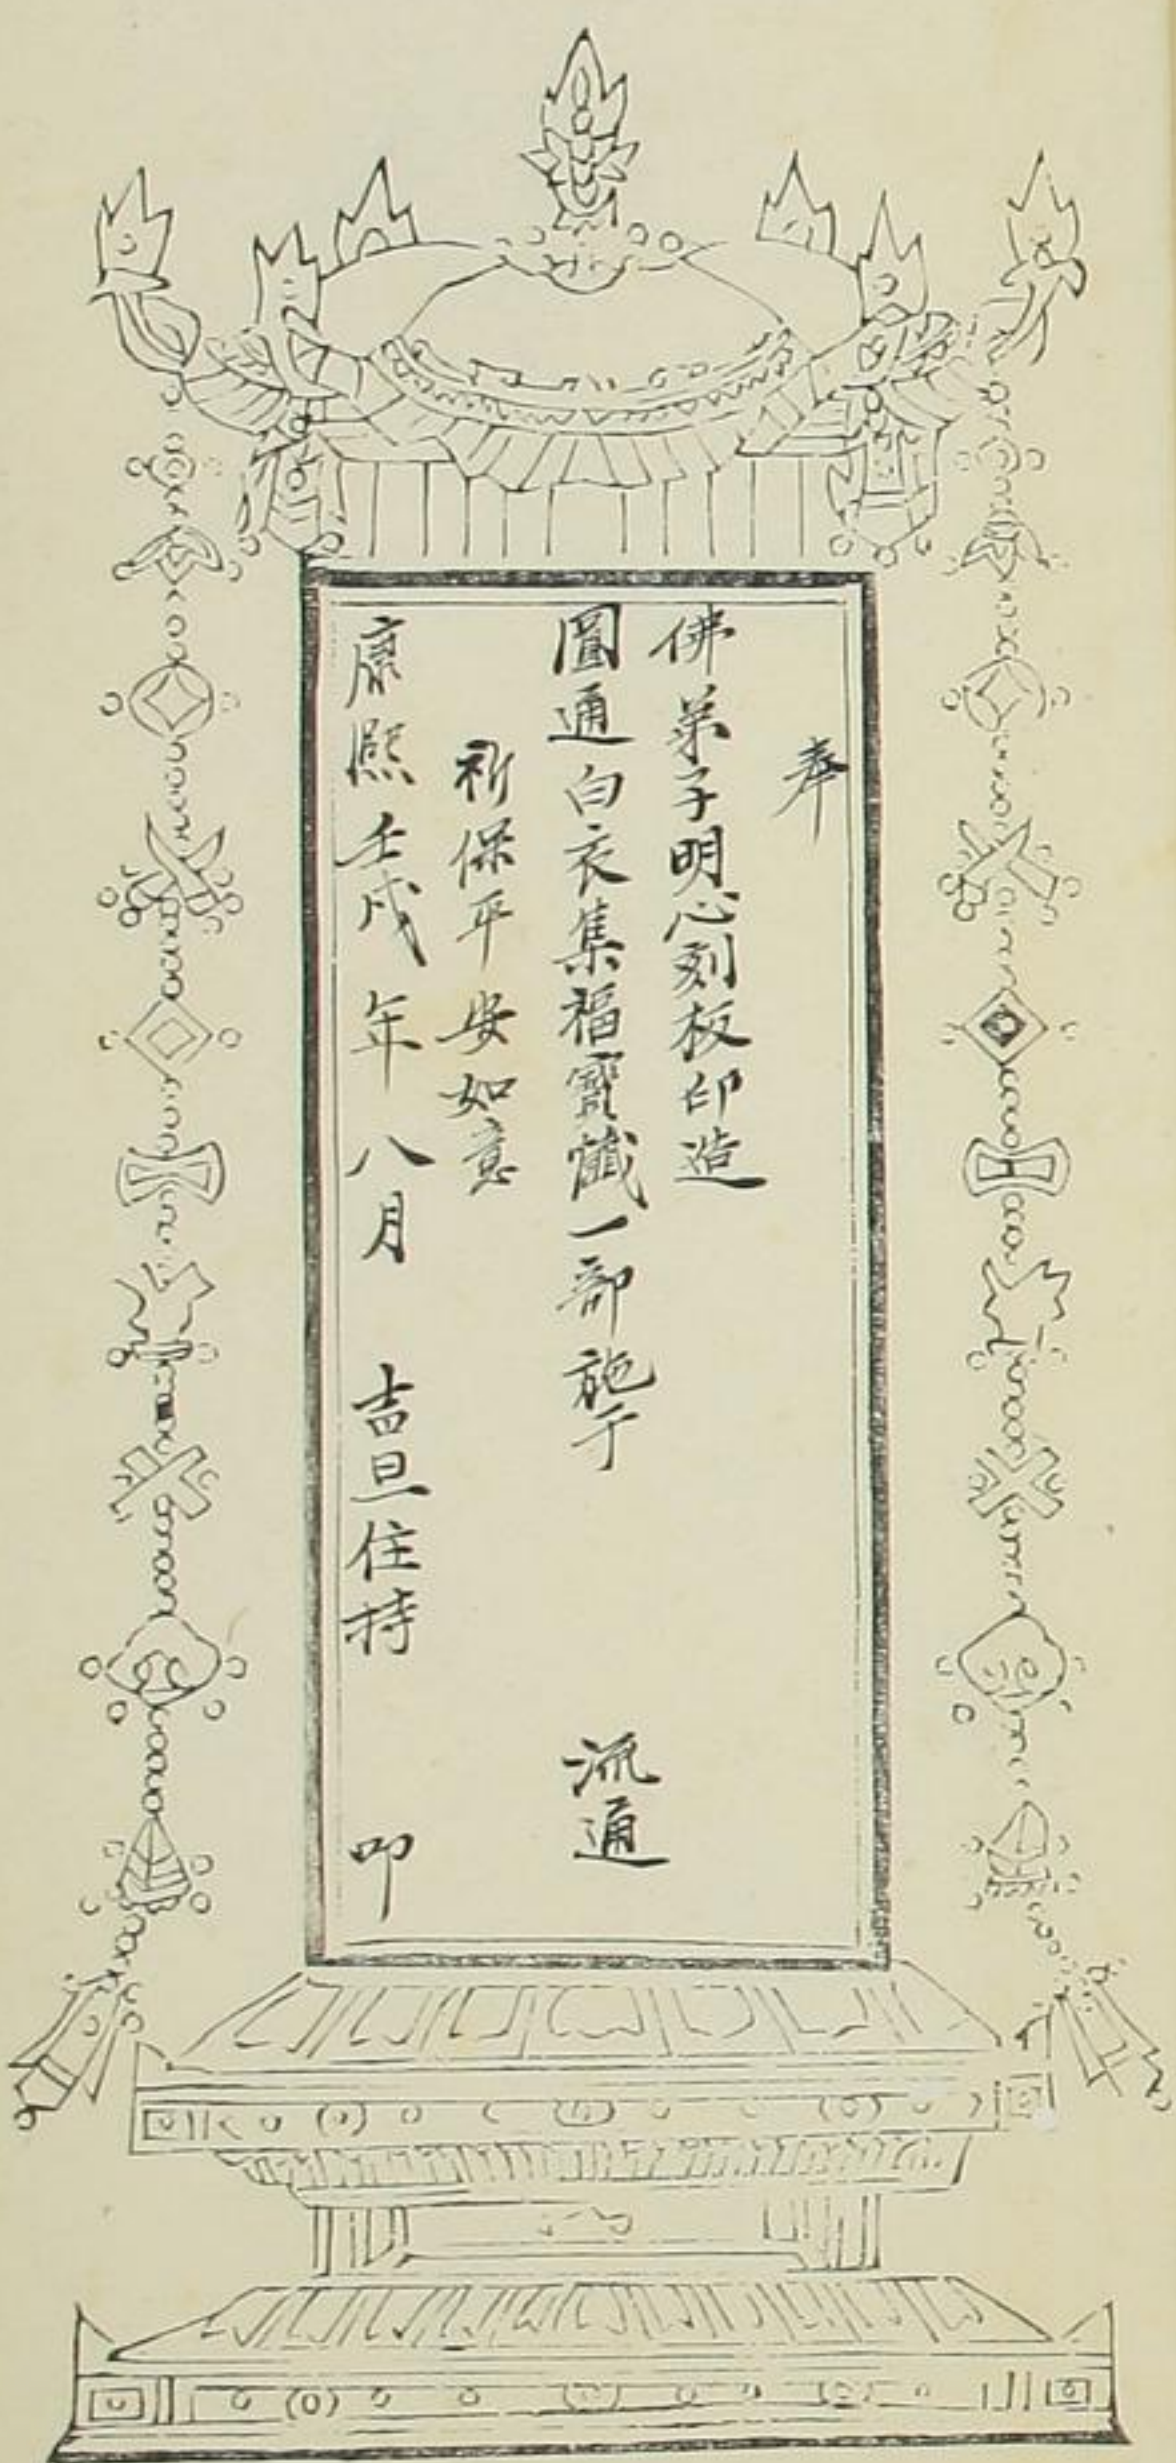 奉
佛弟子明心刻板印造
圓通白衣集福寳懴一部施于 流通
祈保平安如意
康熙壬戌年八月 吉旦住持 叩